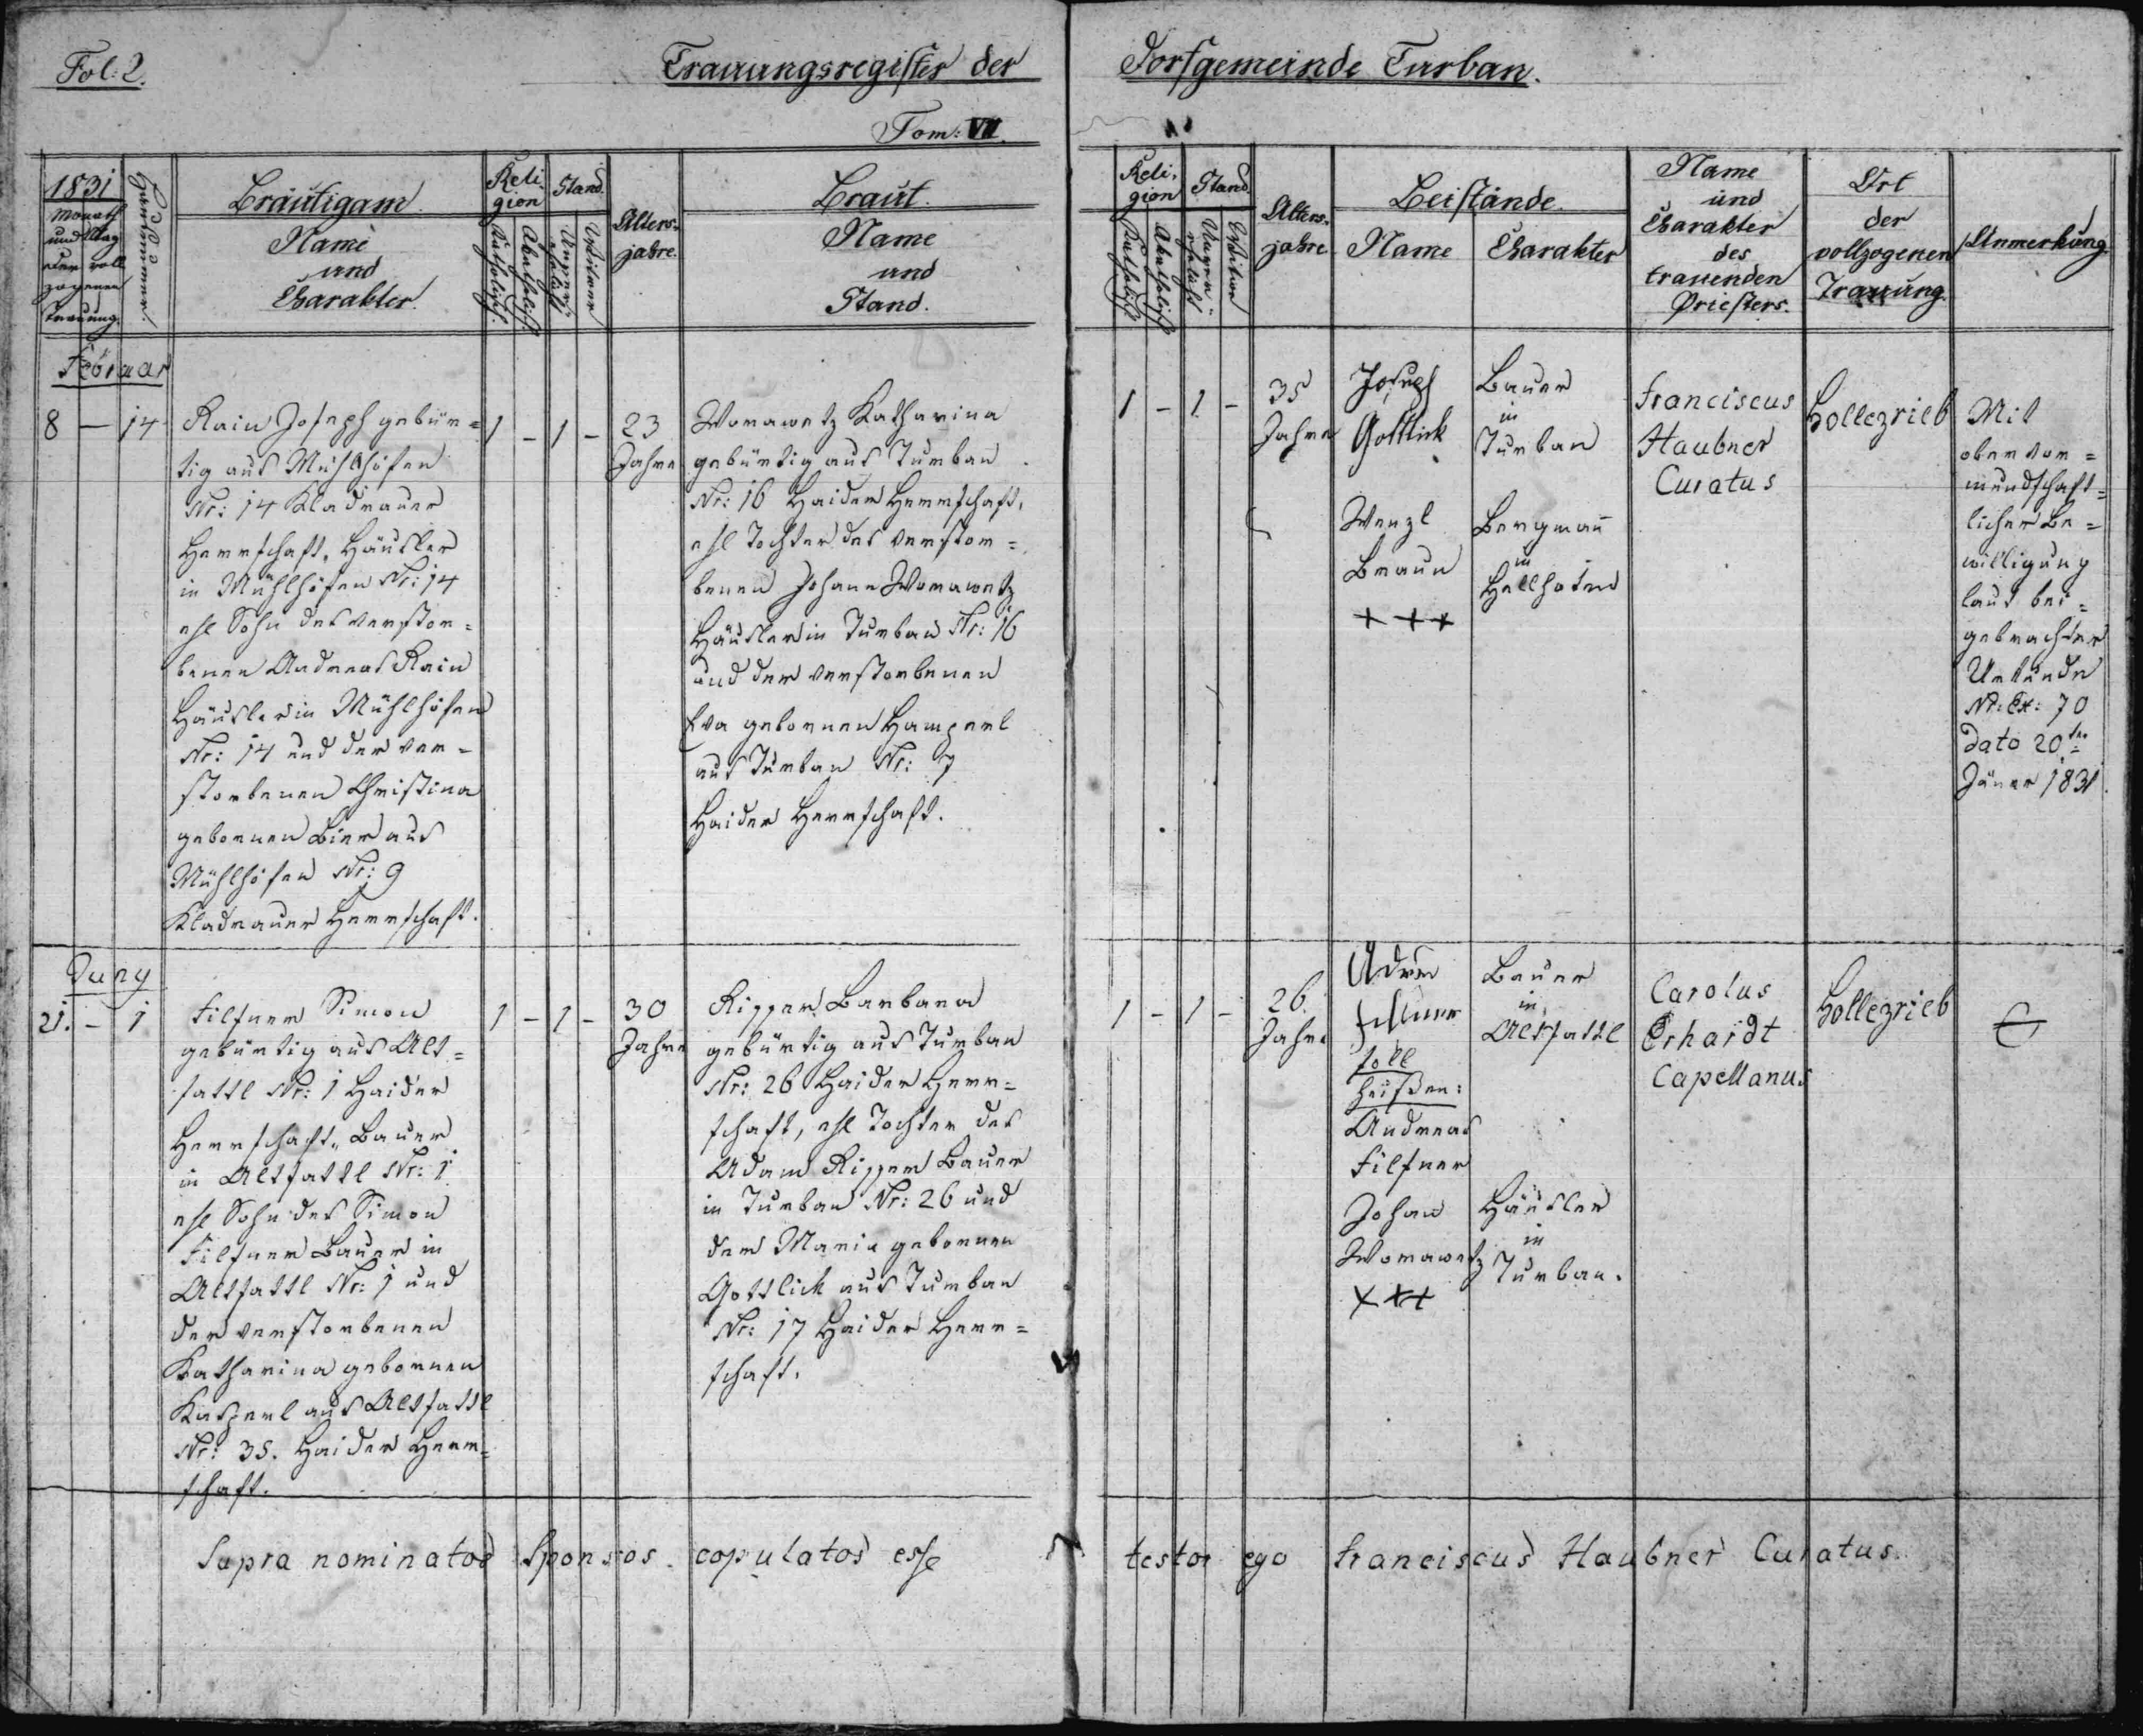 Fol: 2.
Trauungsregister der
Dorfgemeinde Turban.
Tom: VII.
1831
Monath
und Tag
der voll
zogenen
Trauung.
Hausnummer.
Bräutigam
Name
und
Charakter.
Reli-
gion
Katholisch.
Akatholisch
Stand.
Unver-
ehelicht
Witwer
Alters-
jahre.
Braut.
Name
und
Stand.
Reli-
gion
Katholisch
Akatholisch
Stand.
Unver-
ehelicht
Wittwe
Alters-
jahre
Beistände.
Name
Charakter
Name
und
Charakter
des
trauenden
Priesters.
Ort
der
vollzogenen
Trauung.
Anmerkung.
Februar
8 — 14
Rain Joseph gebür=
tig aus Mühlhöfen
Nr: 14 Kladrauer
Herrschaft, Häusler
in Mühlhöfen Nr: 14
ehl Sohn des verstor=
benen Andreas Rain
Häusler in Mühlhöfen
Nr: 14 und der ver=
storbenen Christina
gebornen Bier aus
Mühlhöfen Nr: 9
Kladrauer Herrschaft.
1 - 1 -
23
Jahre
Worawetz Katharina
gebürtig aus Turban
Nr: 16 Haider Herrschaft,
ehl Tochter des verstor=
benen Johann Worawetz
Häusler in Turban Nr: 16
und der verstorbenen
Eva gebornen Hamperl
aus Turban Nr: 7
Haider Herrschaft.
1 - 1 -
35
Jahre
Joseph
Gottlick
Wenzl
Braun
+++
Bauer
in
Turban
Bergmann
in
Hellhoten
Franciscus
Haubner
Curatus
Hollezrieb
Mit
obervor=
mundschaft=
licher Be=
willigung
laut bei=
gebrachter
Urkunde
Nr: Ex: 70
dato 20ten
Jäner 1831.
Juny
21. - 1
Filsner Simon
gebürtig aus Alt=
sattl Nr: 1 Haider
Herrschaft, Bauer
in Altsattl Nr: 1
ehl Sohn des Simon
Filsner Bauer in
Altsattl Nr: 1 und
der verstorbenen
Katharina gebornen
Kasperl aus Altsattl
Nr: 35. Haider Herr=
schaft.
1 - 1 -
30
Jahre
Ripper Barbara
gebürtig aus Turban
Nr: 26 Haider Herr=
schaft, ehl Tochter des
Adam Ripper Bauer
in Turban Nr: 26 und
der Maria gebornen
Gottlick aus Turban
Nr: 17 Haider Herr=
schaft.
1 - 1 -
26.
Jahre
soll
heißen:
Andreas
Filsner
Johan
Worawetz
+++
Bauer
in
Altsattl
Häusler
in
Turban.
Carolus
Erhardt
Capellanus
Hollezrieb
Supra nominatos Sponsos copulatos esse testor ego Franciscus Haubner Curatus.